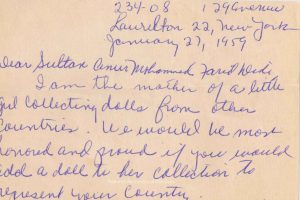 234-08 129 Avenue
Laurelton 22, New York
January 27, 1959
Dear Sultan Amir Mohammed Farid Didi,
I am the mother of a little
girl collecting dolls from other
countries. We would be most
honored and proud if you would
add a doll to her collection to
represent your Country.